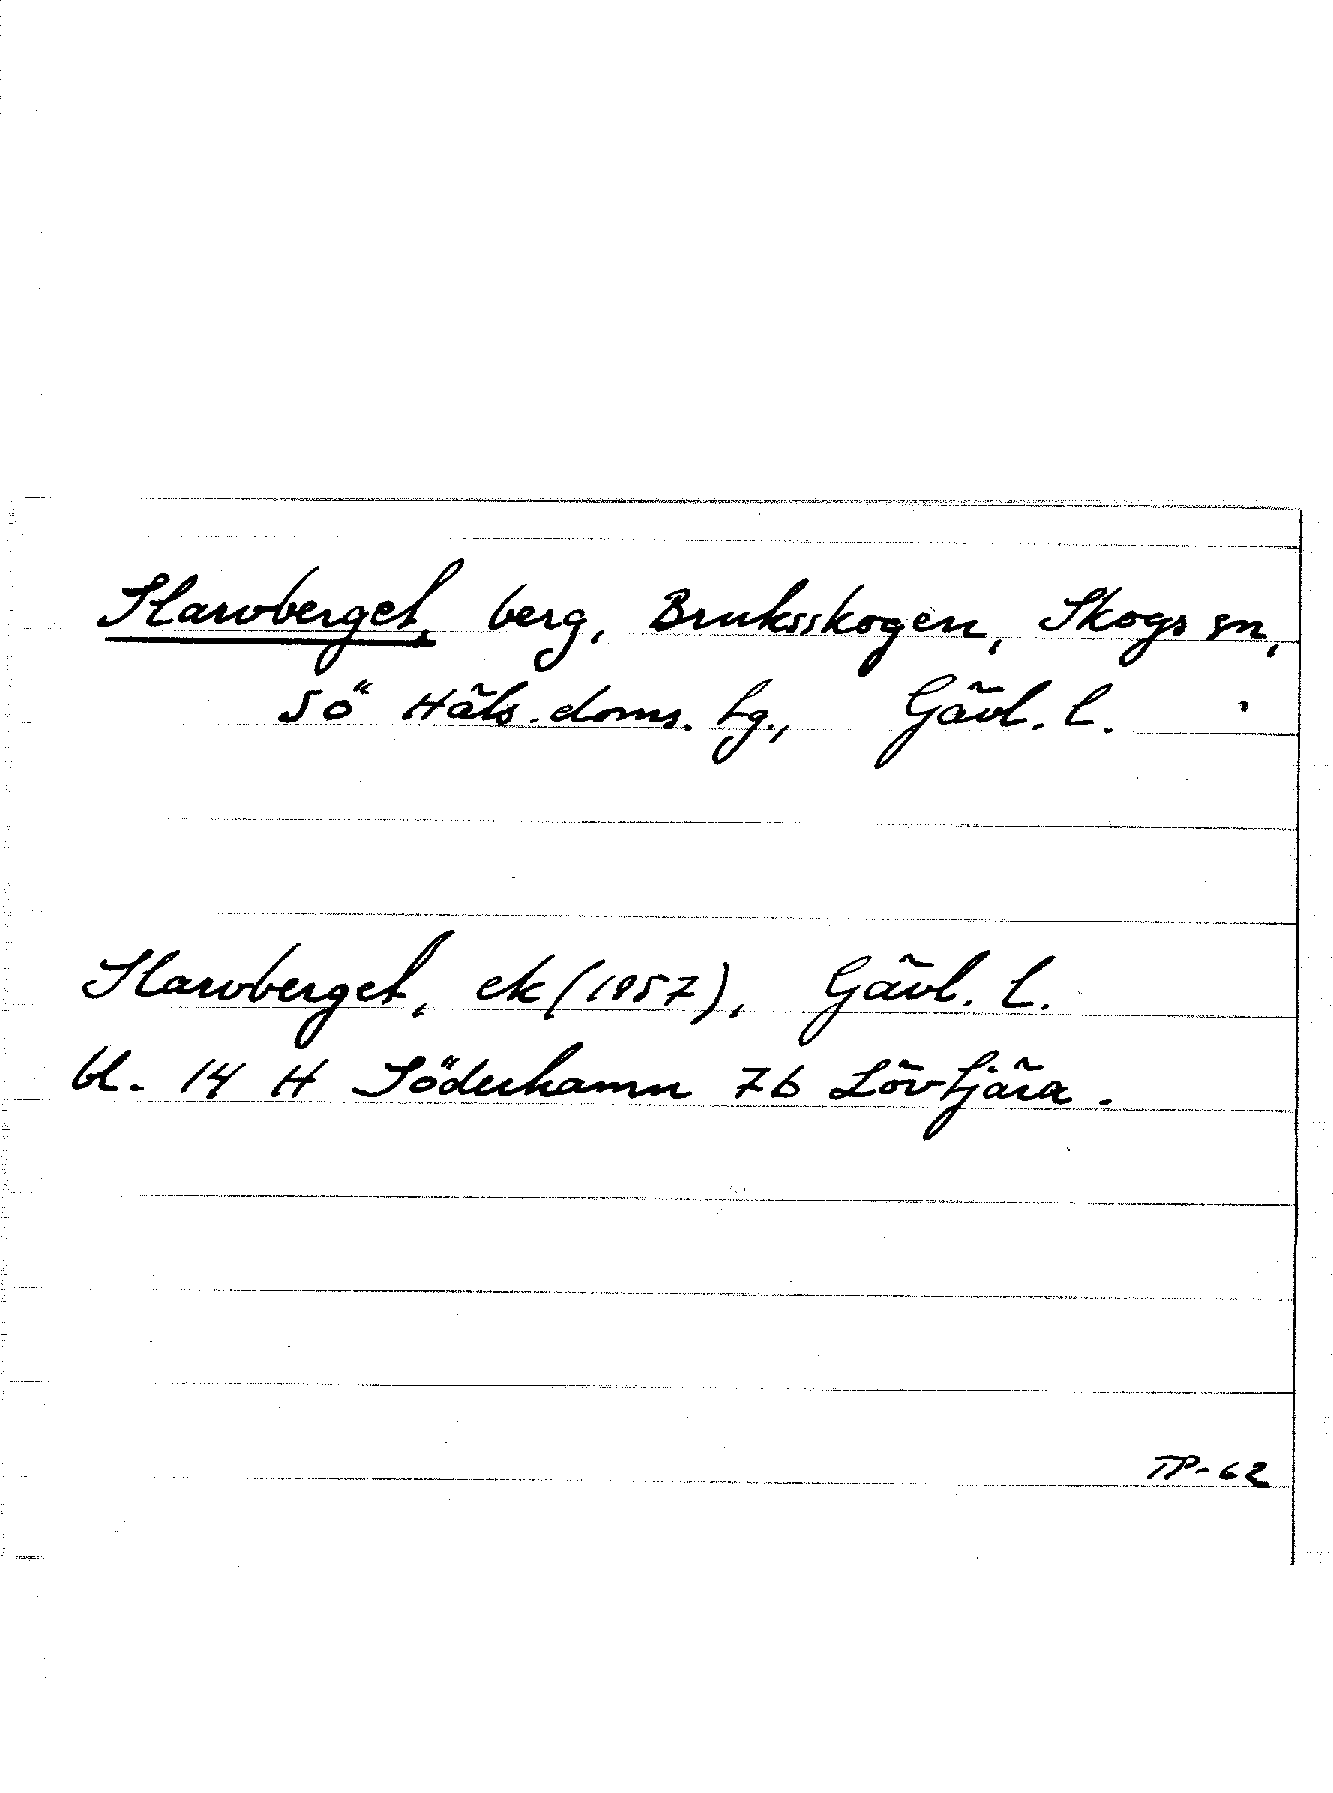 Slarvberget, berg, Bruksskogen, Skogs sn,
Sö Häls. doms. tg., Gävl. l.
Slarvberget, ek (1957), Gävl. l.
bl. 14 H Söderhamn 7b Lövtjära.
TP-62